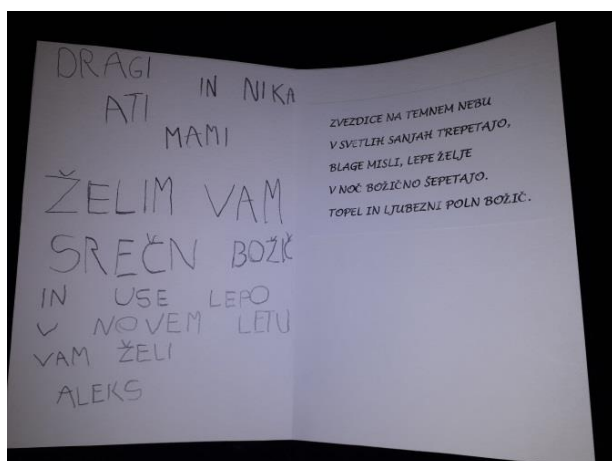 DRAGI
IN NIKA
ATI
MAMI
ŽELIM VAM
SREČN BOŽIČ
IN USE LEPO
V NOVEM LETU
VAM ŽELI
ALEKS
ZVEZDICE NA TEMNEM NEBU
V SVETLIH SANJAH TREPETAJO,
BLAGE MISLI, LEPE ŽELJE
V NOČ BOŽIČNO ŠEPETAJO.
TOPEL IN LJUBEZNI POLN BOŽIČ.